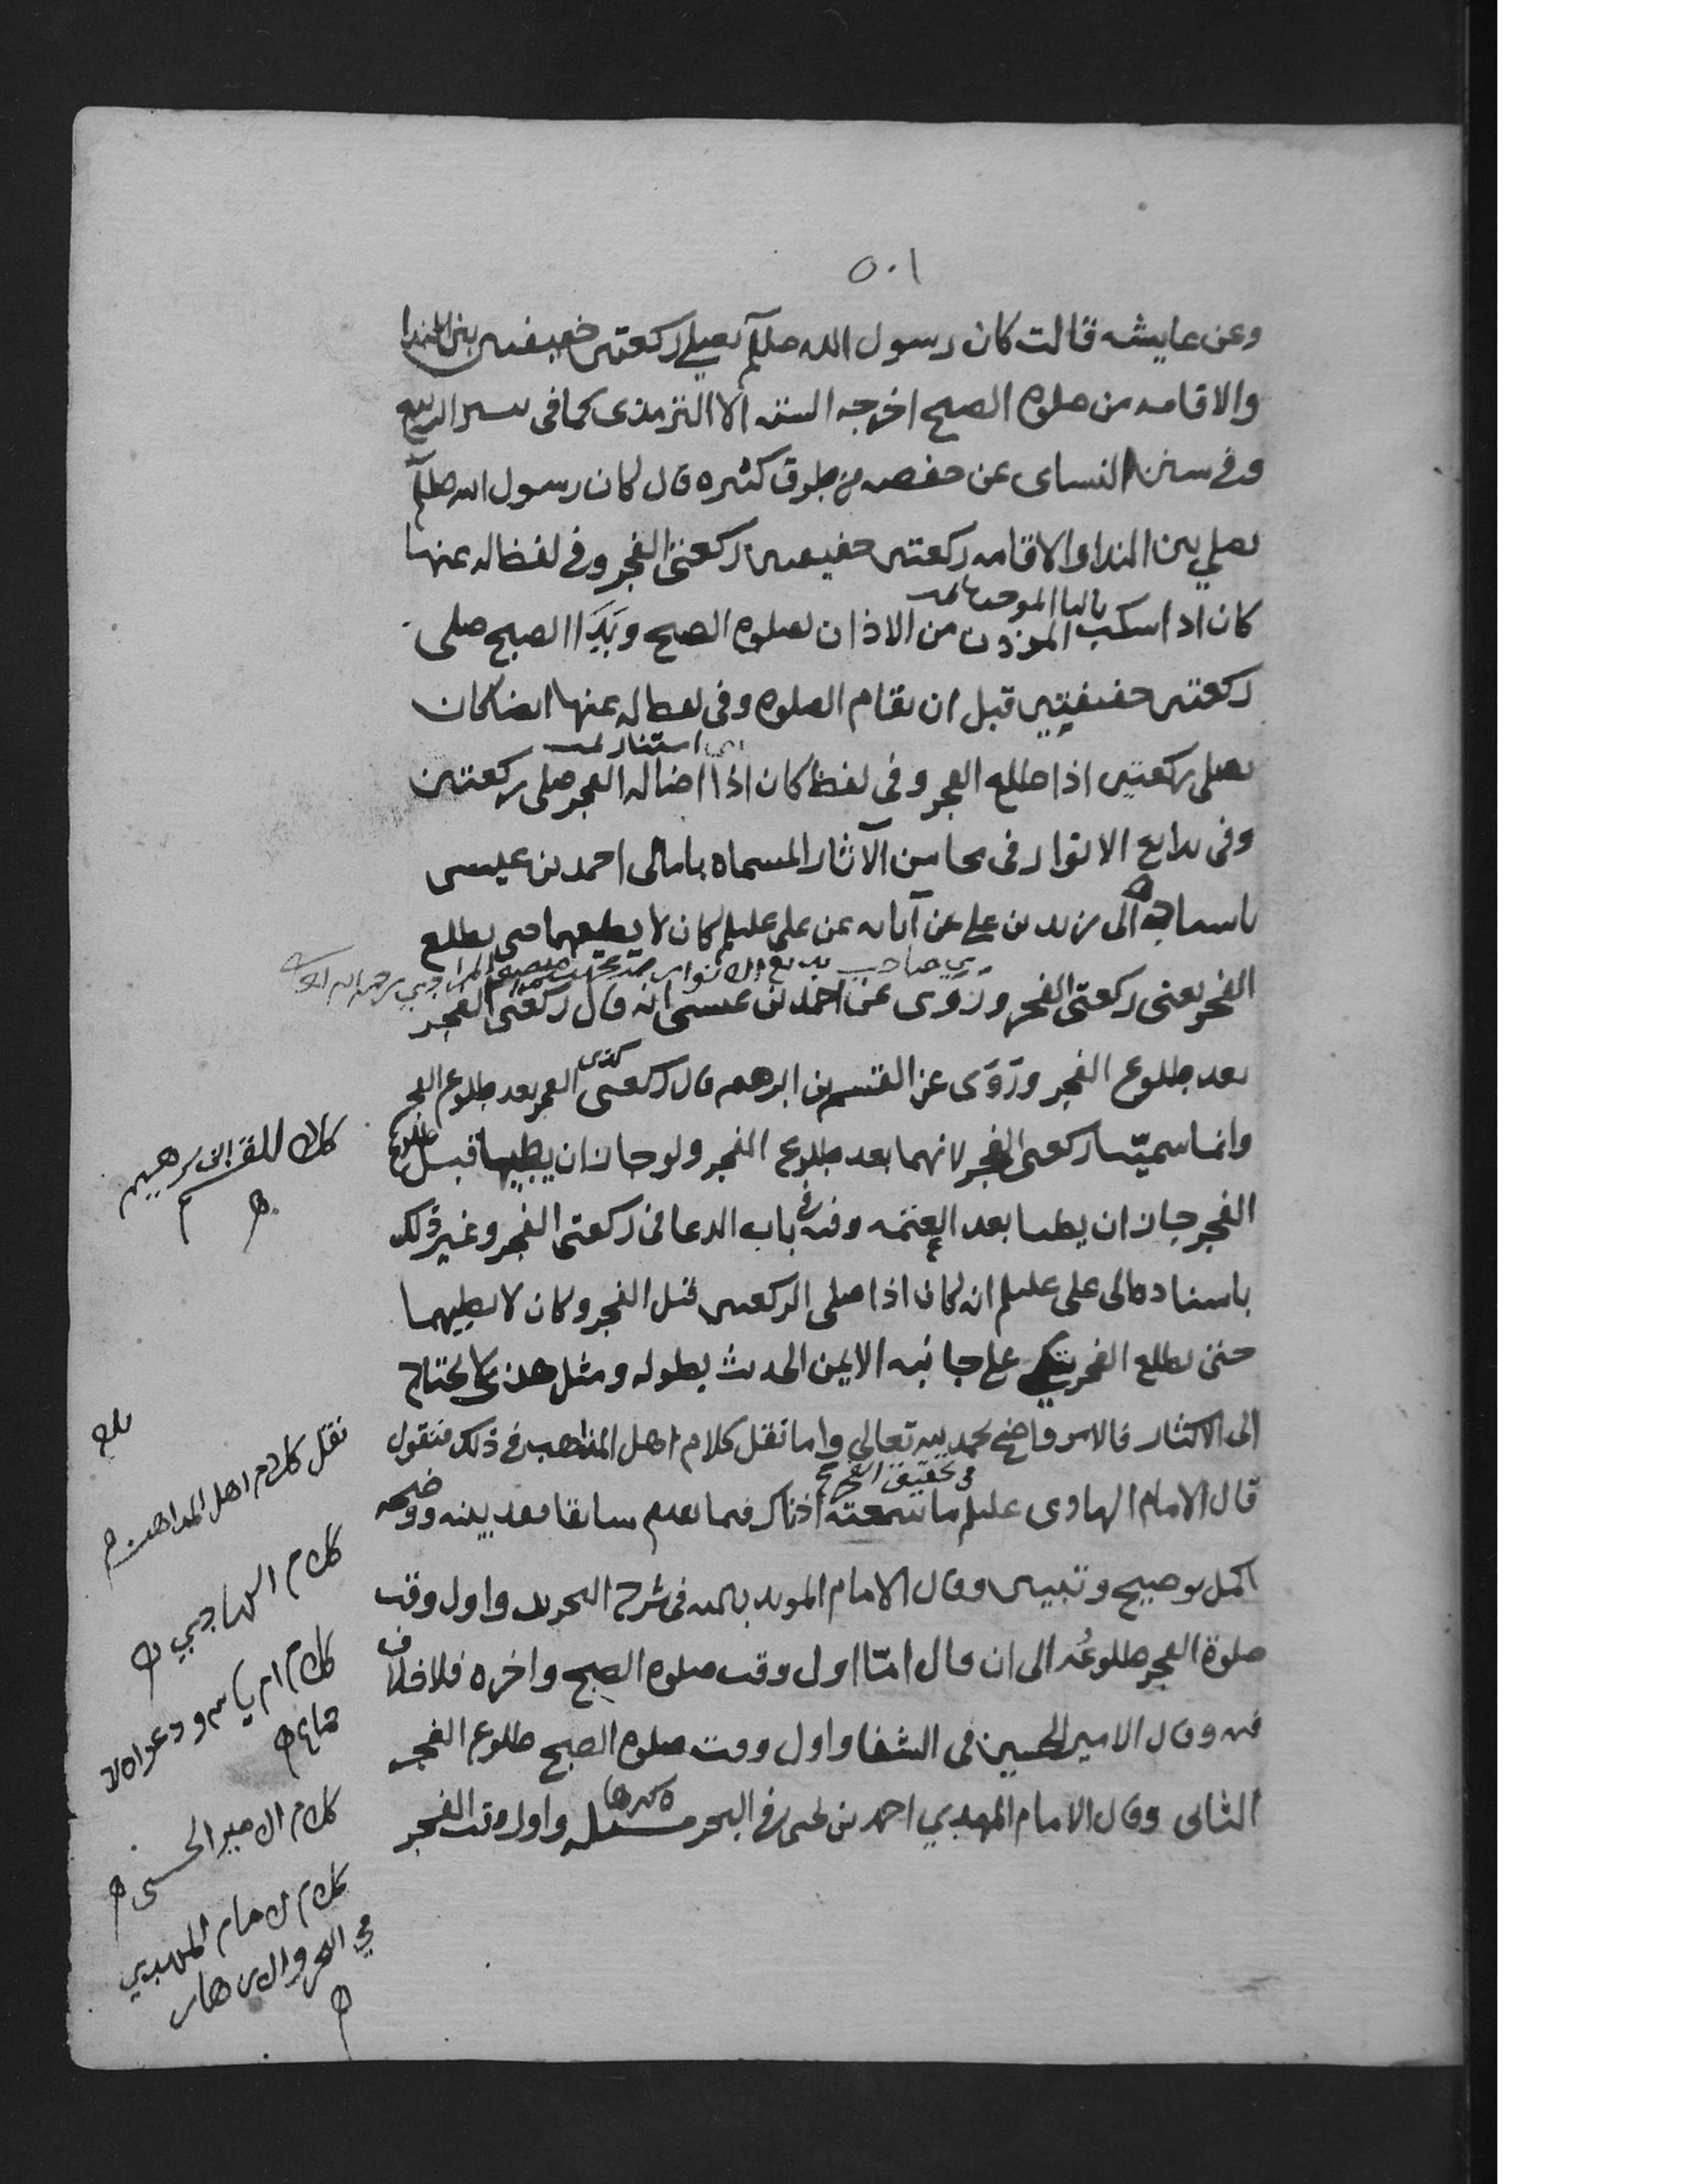 ٥٠١
وعن عايشه قالت كان رسول الله صللم يصلي ركعتين خفيفتين بين الندا
والاقامه من صلوه الصبح اخرجه الستة الا الترمذي كما في تيسير الديبع
وفي سنن النساى عن حفصه من طرق كثيره قال كان رسول الله صللم
يصلي بين الندا والاقامه ركعتين خفيفتين ركعتى الفجر وفي لفظ له عنها
بالبا الموحده تمت
كان اذا سكب الموذن من الاذان لصلوه الصبح وبَدَا الصبح صلى
ركعتين خفيفتين قبل ان تقام الصلوه وفى لفظ له عنها ايضا كان
اي استنار تمت
يصلى ركعتين اذا طلع الفجر وفى لفظ كان اذا اضا له الفجر صلى ركعتين
وفى بدايع الانوار فى محاسن الآثار المسماه بامالى احمد بن عيسى
باسناده الى زيد بن على عن آبائه عن على عليلم كان لا يصليهما حتى يطلع
اي صاحب بدايع الانوار محمد بن منصور المرادي رحمه الله
الفجر يعنى ركعتى الفجر وروى عن احمد بن عيسى انه قال ركعتى الفجر
بعد طلوع الفجر وروَى عن القسم بن ابرهيم قال ركعتى الفجر بعد طلوع الفجر
وانما سميّتا ركعتى الفجر لانهما بعد طلوع الفجر ولو جاز ان يصليهما قبل طلوع
الفجر جاز ان يصليا بعد العتمه وفيه في باب الدعا فى ركعتى الفجر وغير ذلك
باسناده الى على عليلم انه كان اذا صلى الركعتين قبل الفجر وكان لا يصليهما
حتى يطلع الفجر يتكى على جانبه الايمن الحديث بطوله ومثل هذا لا يحتاج
الى الاكثار فالامر واضح بحمد الله تعالى واما نقل كلام اهل المذاهب في ذلك فنقول
في تحقيق الفجر
قال الامام الهادى عليلم ما سمعته اذناك فيما تقدم سابقا فقد بينه ووضحه
اكمل توضيح وتبيين وقال الامام المويد بالله فى شرح التجريد واول وقت
صلوة الفجر طلوعُه الى ان قال امّا اول وقت صلوه الصبح واخره فلا خلاف
فيه وقال الامير الحسين فى الشفا واول وقت صلوه الصبح طلوع الفجر
الثانى وقال الامام المهدي احمد بن يحيى في البحر مسئله واول وقت الفجر
كلام القسم بن ابرهيم
نقل كلام اهل المذاهب
كلام الهادي
كلام ام بالله ودعواه الا
جماع
كلام الامير الحسين
كلام الامام المهدي
في البحر والازهار